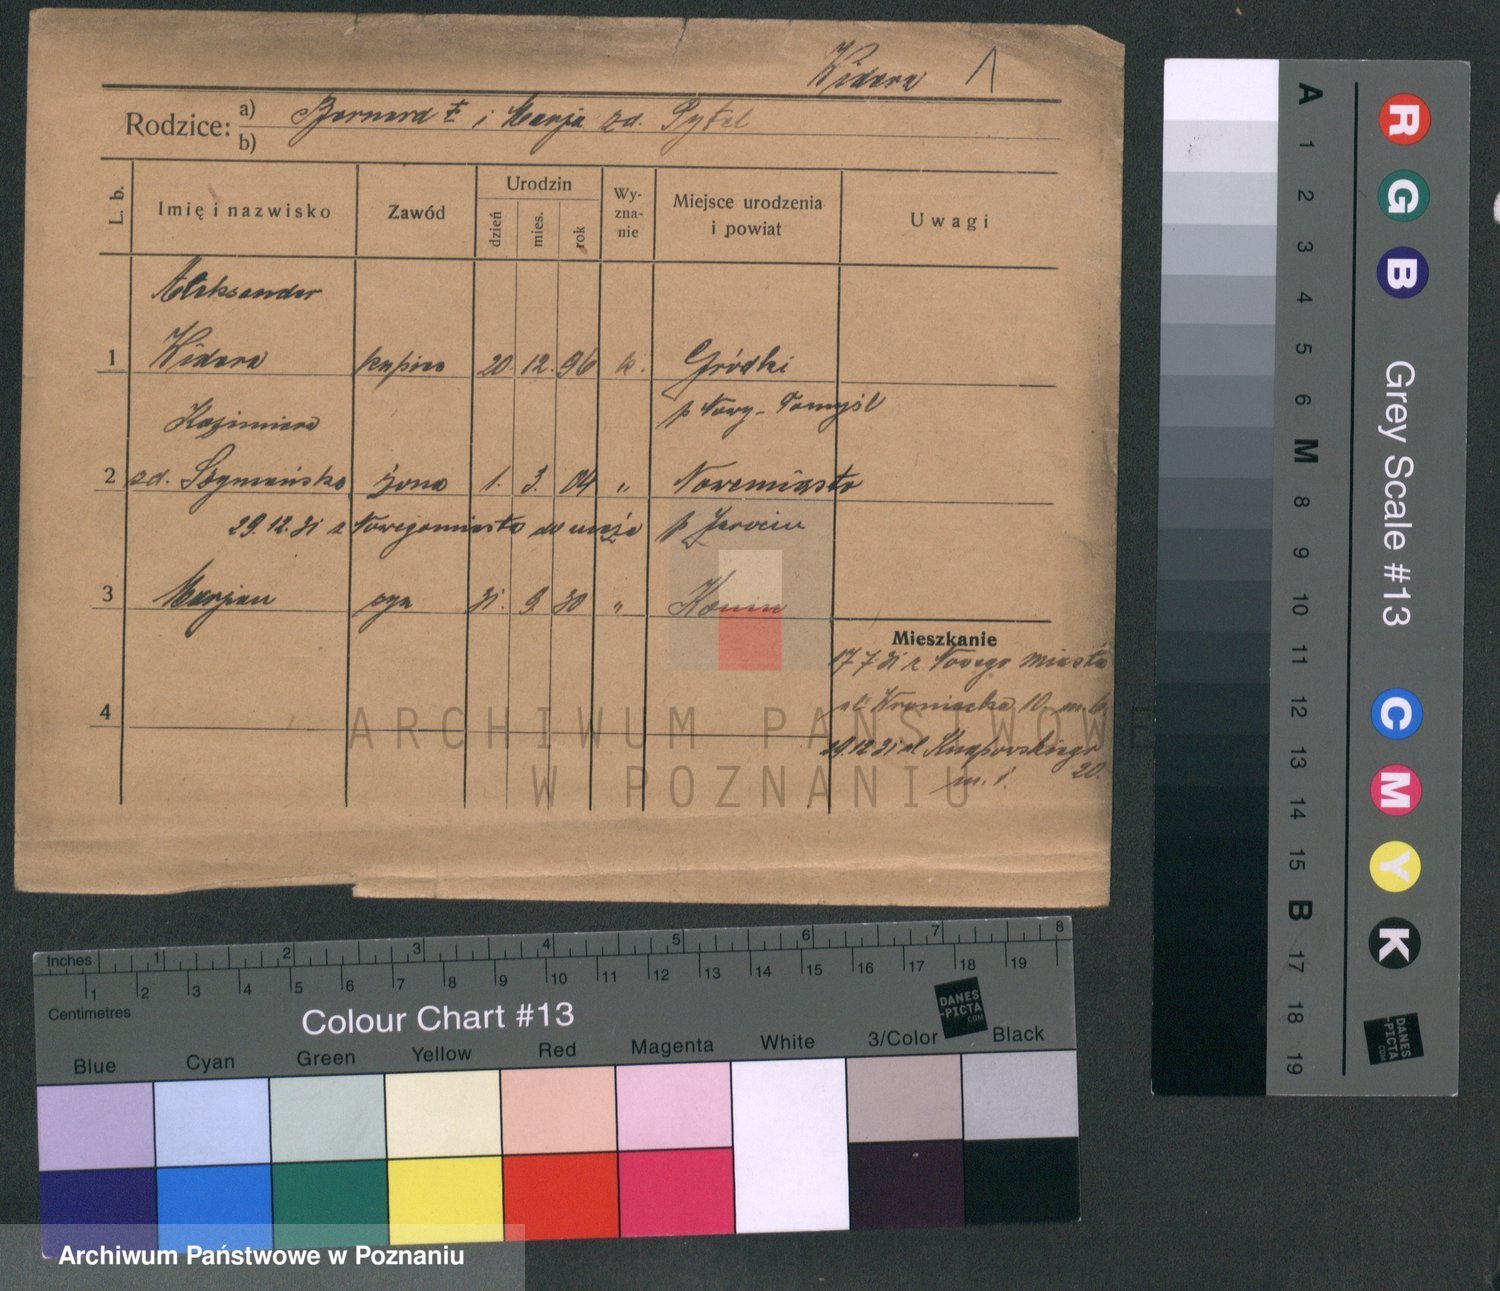 Widera 1
Rodzice: a) Bernard † i Marja zd. Pytel
b)
L. b. Imię i nazwisko Zawód Urodzin dzień mies. rok Wy-zna-nie Miejsce urodzenia i powiat Uwagi
Aleksander
1 Widera kupiec 20. 12. 96 k. Gródki
p Nowy-Tomyśl
Kazimiera
2 zd. Szymańska żona 1. 3. 04 " Nowemiasto
29.12.31 z Nowegomiasta do męża p Jarocin
3 Marjan syn 31. 9. 30 " Konin
Mieszkanie
17 7 31 z Nowego Miasta
ul. 10. m. 6
4
29.12 31 ul Knapowskiego
20.
m. 1.
ARCHIWUM PAŃSTWOWE
W POZNANIU
A 1 2 3 4 5 6 M 8 9 10 11 12 13 14 15 B 17 18 19
R G B
Grey Scale #13
C M Y K
DANES
-PICTA
.COM
Inches 1 2 3 4 5 6 7 8
1 2 3 4 5 6 7 8 9 10 11 12 13 14 15 16 17 18 19
Centimetres
Colour Chart #13
DANES
-PICTA
.COM
Blue Cyan Green Yellow Red Magenta White 3/Color Black
Archiwum Państwowe w Poznaniu